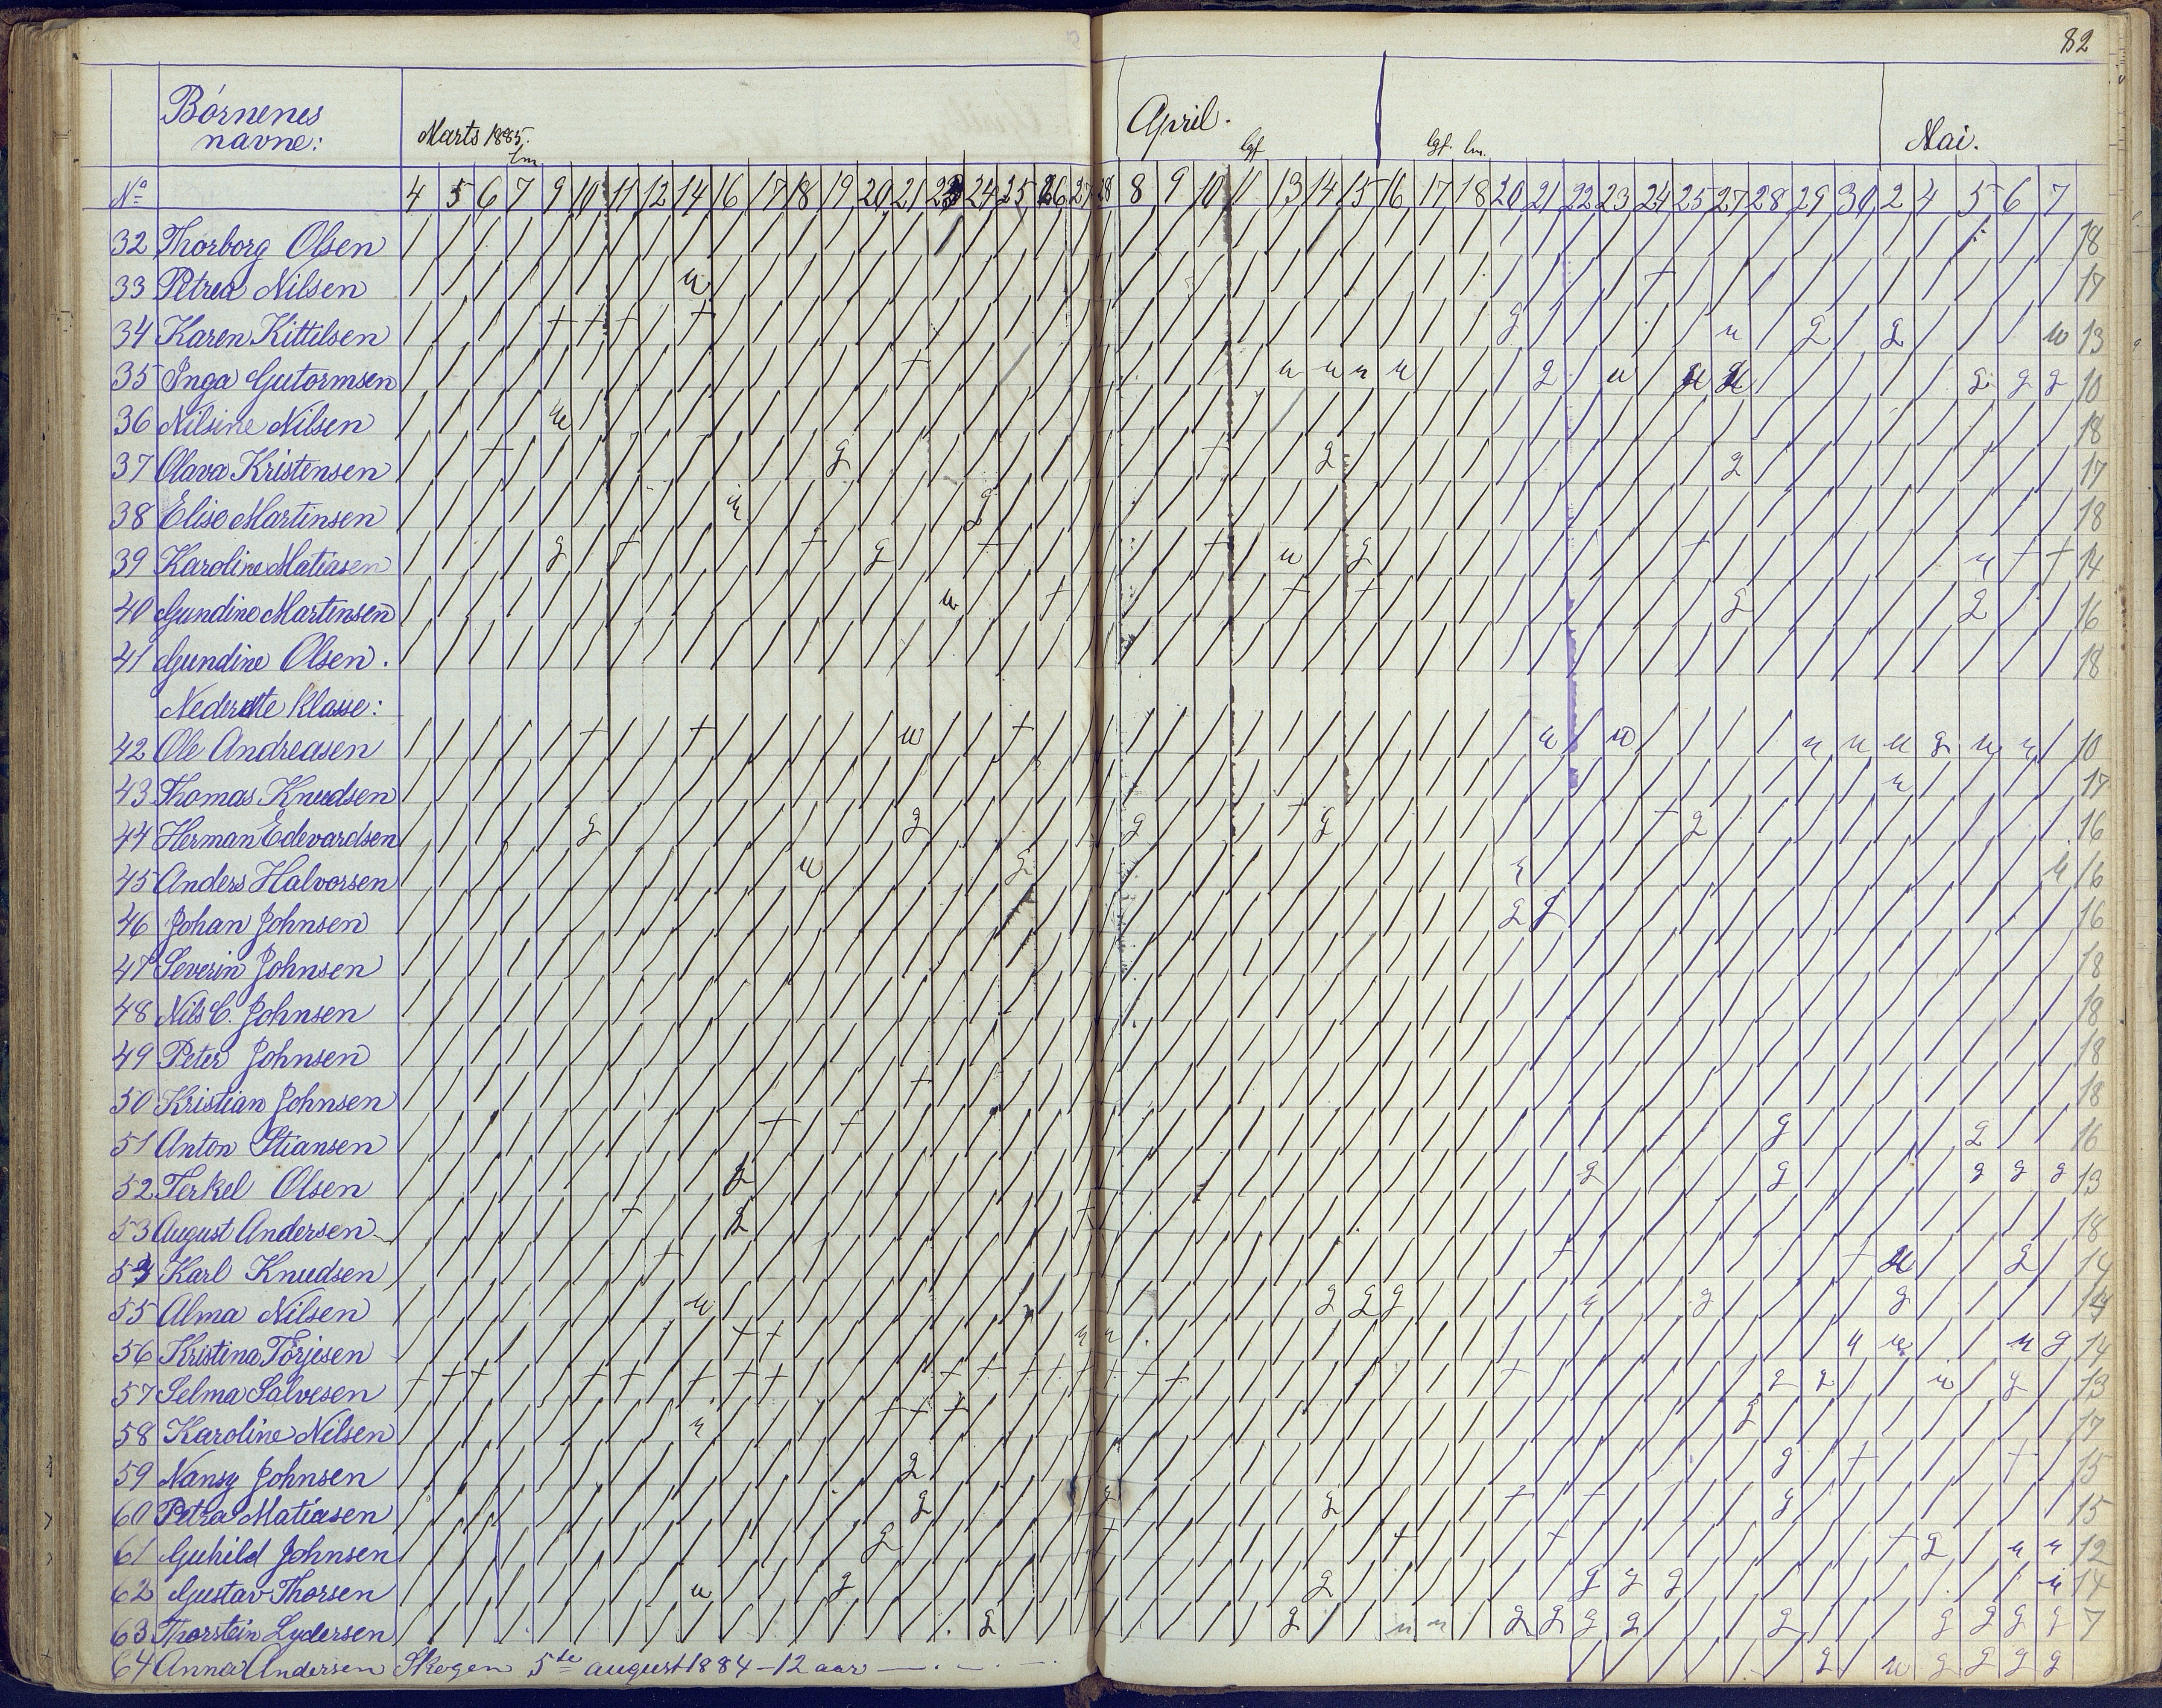 82
Börnenes
navne:
Marts 1885.
April.
Mai.
lm.
lgf
lgf. lm.
No
4 5 6 7 9 10 11 12 14 16 17 18 19 20 21 23 24 25 26 27 28 8 9 10 11 13 14 15 16 17 18 20 21 22 23 24 25 27 28 29 30 2 4 5 6 7
32 Thorborg Olsen 18
33 Petrea Nilsen u 17
34 Karen Kittilsen g u g g u 13
35 Inga Gutormsen u u u u g u u u g g g 10
36 Nilsine Nilsen u 18
37 Olava Kristensen g g g 17
38 Elise Martinsen u g 18
39 Karoline Matiasen g g u g u 14
40 Gundine Martinsen u g g 16
41 Gundine Olsen. 18
Nederste klasse:
42 Ole Andreasen u u u u u u g u u 10
43 Thomas Knudsen u 17
44 Herman Edevardsen g g g g g 16
45 Anders Halvorsen u g u u 16
46 Johan Johnsen g g 16
47 Severin Johnsen 18
48 Nils C. Johnsen 18
49 Peter Johnsen 18
50 Kristian Johnsen 18
51 Anton Stiansen g g 16
52 Terkel Olsen g g g g g g 13
53 August Andersen g 18
54 Karl Knudsen u g 14
55 Alma Nilsen u g g g u g g 14
56 Kristina Törjesen u u u u u g 14
57 Selma Salvesen g g u g 13
58 Karoline Nilsen u g 17
59 Nansy Johnsen g g 15
60 Petra Matiasen g g g g 15
61 Guhild Johnsen g g u u 12
62 Gustav Thorsen u g g g g g u 14
63 Thorstein Lydersen g g u u g g g g g g g g g 7
64 Anna Andersen Skogen 5te august 1884 - 12 aar g u g g g g